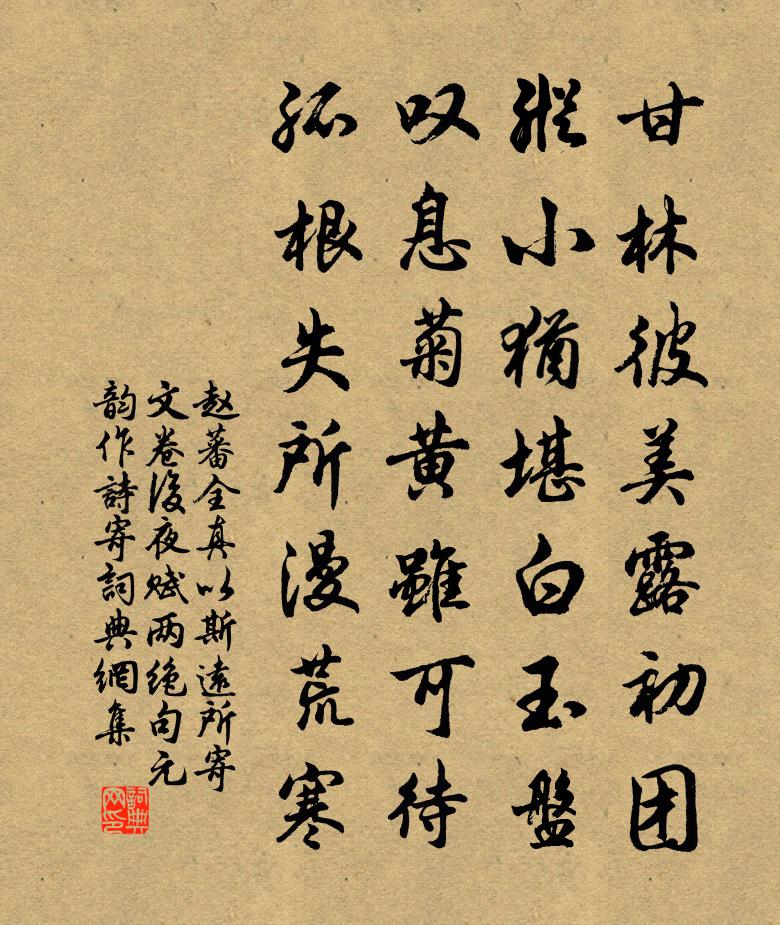 甘林彼美露初团
纵小犹堪白玉盘
叹息菊黄虽可待
孤根失所漫荒寒
赵蕃全真以斯远所寄
文卷後夜赋两绝句元
韵作詩寄詞典網集
詞典
网印